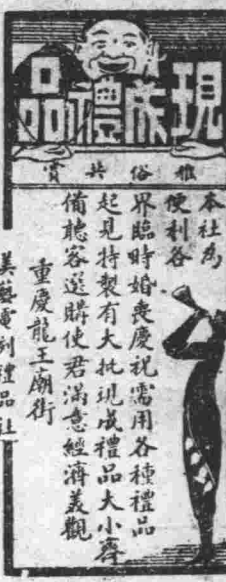 現成禮品
雅俗共賞
本社為
便利各
界臨時婚喪慶祝需用各種禮品
起見特製有大批現成禮品大小齊
備聽客選購使君滿意經濟美觀
重慶龍王廟街
美藝電刻禮品社